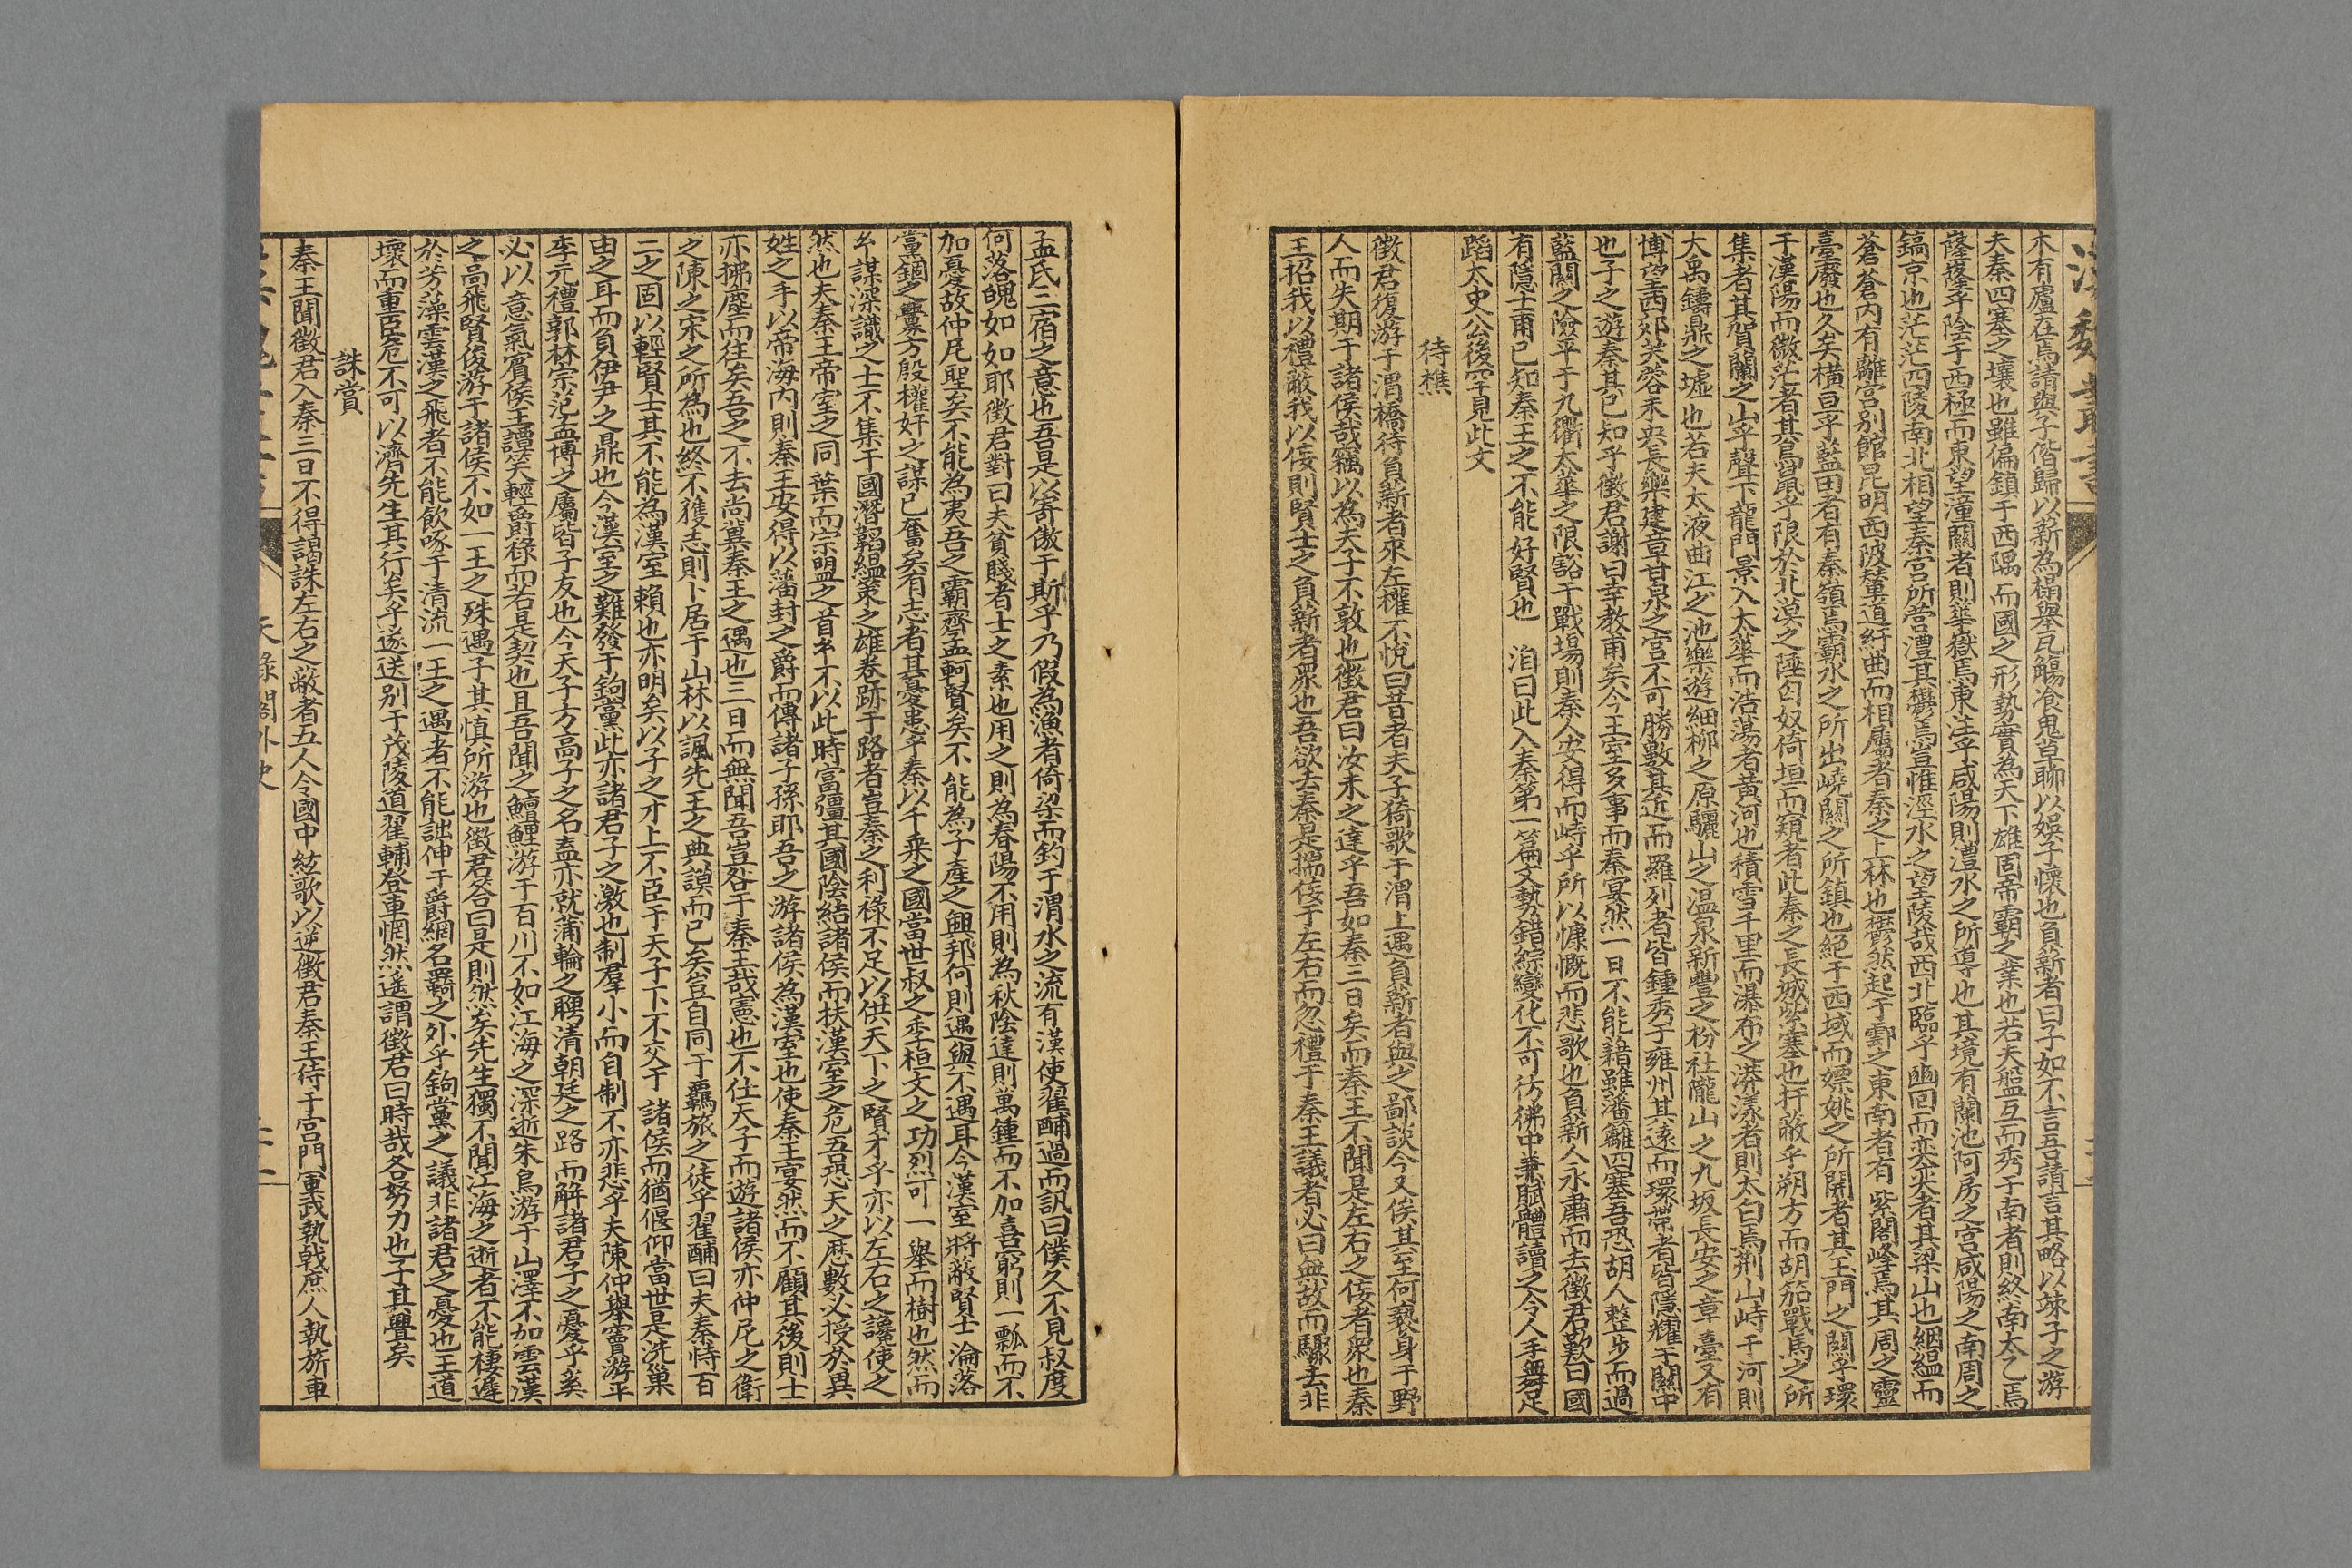 木有廬在焉請與子偕歸以新為榻舉瓦觴飡鬼草聊以娛子懷也負新者曰子如不言吾請言其略以竦子之游
夫秦四塞之壤也雖偏鎮于西隅而國之形勢實為天下雄固帝霸之業也若夫盤互而秀于南者則終南太乙焉
隆隆乎陰于西極而東望潼關者則華嶽焉東注乎咸陽則澧水之所導也其境有蘭池阿房之宮咸陽之南周之
鎬京也茫茫四陵南北相望秦宮所營澧其鬱焉豈惟涇水之望陵哉西北臨乎幽囘而奕奕者其梁山也絪縕而
蒼蒼内有離宮别館昆明西陂輦道紆曲而相屬者秦之上林也鬱然起于鄠之東南者有紫閣峰焉其周之靈
臺廢也久矣橫亘乎藍田者有秦嶺焉霸水之所出嶢關之所鎮也絕于西域而嫖姚之所開者其玉門之關乎環
于漢陽而微茫者其鳥鼠乎限於北漠之陲匈奴倚垣而窺者此秦之長城紫塞也扞敵乎朔方而胡笳戰馬之所
集者其賀蘭之山乎聲下龍門景入太華而浩蕩者黄河也積雪千里而瀑布之漭漾者則太白焉荆山峙于河則
大禹鑄鼎之墟也若夫太液曲江之池樂遊細柳之原驪山之温泉新豐之枌社隴山之九坂長安之章臺又有
博望西郊芙蓉未央長樂建章甘泉之宮不可勝數其近而羅列者皆鍾秀于雍州其遠而環帶者皆隱耀于關中
也子之遊秦其已知乎徵君謝曰幸教甫矣今王室多事而秦宴然一日不能藉雖藩籬四塞吾恐胡人整步而過
藍關之險平于九衢太華之限豁于戰場則秦人安得而峙乎所以慷慨而悲歌也負新人永肅而去徵君歎曰國
有隱士甫已知秦王之不能好賢也　洎曰此入秦第一篇文勢錯綜變化不可彷彿中兼賦體讀之令人手舞足
蹈太史公後罕見此文
待樵
徵君復游于渭橋待負新者來左權不悅曰昔者夫子猗歌于渭上遇負新者與之鄙談今又俟其至何褻身于野
人而失期于諸侯哉竊以為夫子不敦也徵君曰汝未之達乎吾如秦三日矣而秦王不聞是左右之佞者衆也秦
王招我以禮蔽我以佞則賢士之負新者衆也吾欲去秦是揣佞于左右而忽禮于秦王議者必曰無故而驟去非
孟氏三宿之意也吾是以寄傲于斯乎乃假為漁者倚梁而釣于渭水之流有漢使翟酺過而訊曰僕久不見叔度
何落魄如如耶徵君對曰夫貧賤者士之素也用之則為春陽不用則為秋陰達則萬鍾而不加喜窮則一瓢而不
加憂故仲尼聖矣不能為夷吾之霸齊孟軻賢矣不能為子產之興邦何則遇與不遇耳今漢室將敝賢士淪落
黨錮之釁方殷權奸之謀已奮矣有志者其憂患乎秦以千乘之國當世叔之季桓文之功烈可一舉而樹也然而
幺謀深識之士不集于國潛韜緼策之雄卷跡于路者豈秦之利祿不足以供天下之賢才乎亦以左右之讒使之
然也夫秦王帝室之同葉而宗盟之首幺不以此時富彊其國陰結諸侯而扶漢室之危吾恐天之厯數必授於異
姓之手以帝海内則秦王安得以藩封之爵而傳諸子孫耶吾之游諸侯為漢室也使秦王宴然而不顧其後則士
亦拂塵而往矣吾之不去尚冀秦王之遇也三日而無聞吾豈咎于秦王哉憲也不仕天子而遊諸侯亦仲尼之衛
之陳之宋之所為也終不獲志則卜居于山林以諷先王之典謨而已矣豈自同于羈旅之徒乎翟酺曰夫秦恃百
二之固以輕賢士其不能為漢室賴也亦明矣以子之才上不臣于天子下不交于諸侯而猶偃仰當世是洗巢
由之耳而負伊尹之鼎也今漢室之難發于鉤黨此亦諸君子之激也制羣小而自制不亦悲乎夫陳仲舉竇游平
李元禮郭林宗范孟博之屬皆子友也今天子方高子之名盍亦就蒲輪之聘清朝廷之路而解諸君子之憂乎奚
必以意氣賓侯王譚笑輕爵祿而若是契也且吾聞之鱣鯉游于百川不如江海之深逝朱鳥游于山澤不如雲漢
之高飛賢俊游于諸侯不如一王之殊遇子其慎所游也徵君答曰是則然矣先生獨不聞江海之逝者不能棲遲
於芳藻雲漢之飛者不能飲啄于清流一王之遇者不能詘伸于爵綱名羈之外乎鉤黨之議非諸君之憂也王道
壞而重臣危不可以濟先生其行矣乎遂送别于茂陵道翟輔登車惘然遙謂徵君曰時哉各努力也子其舋矣
誅賞
秦王聞徵君入秦三日不得謁誅左右之蔽者五人令國中絃歌以逆徵君秦王待于宮門軍武執戟庶人執旂車
天祿閣外史